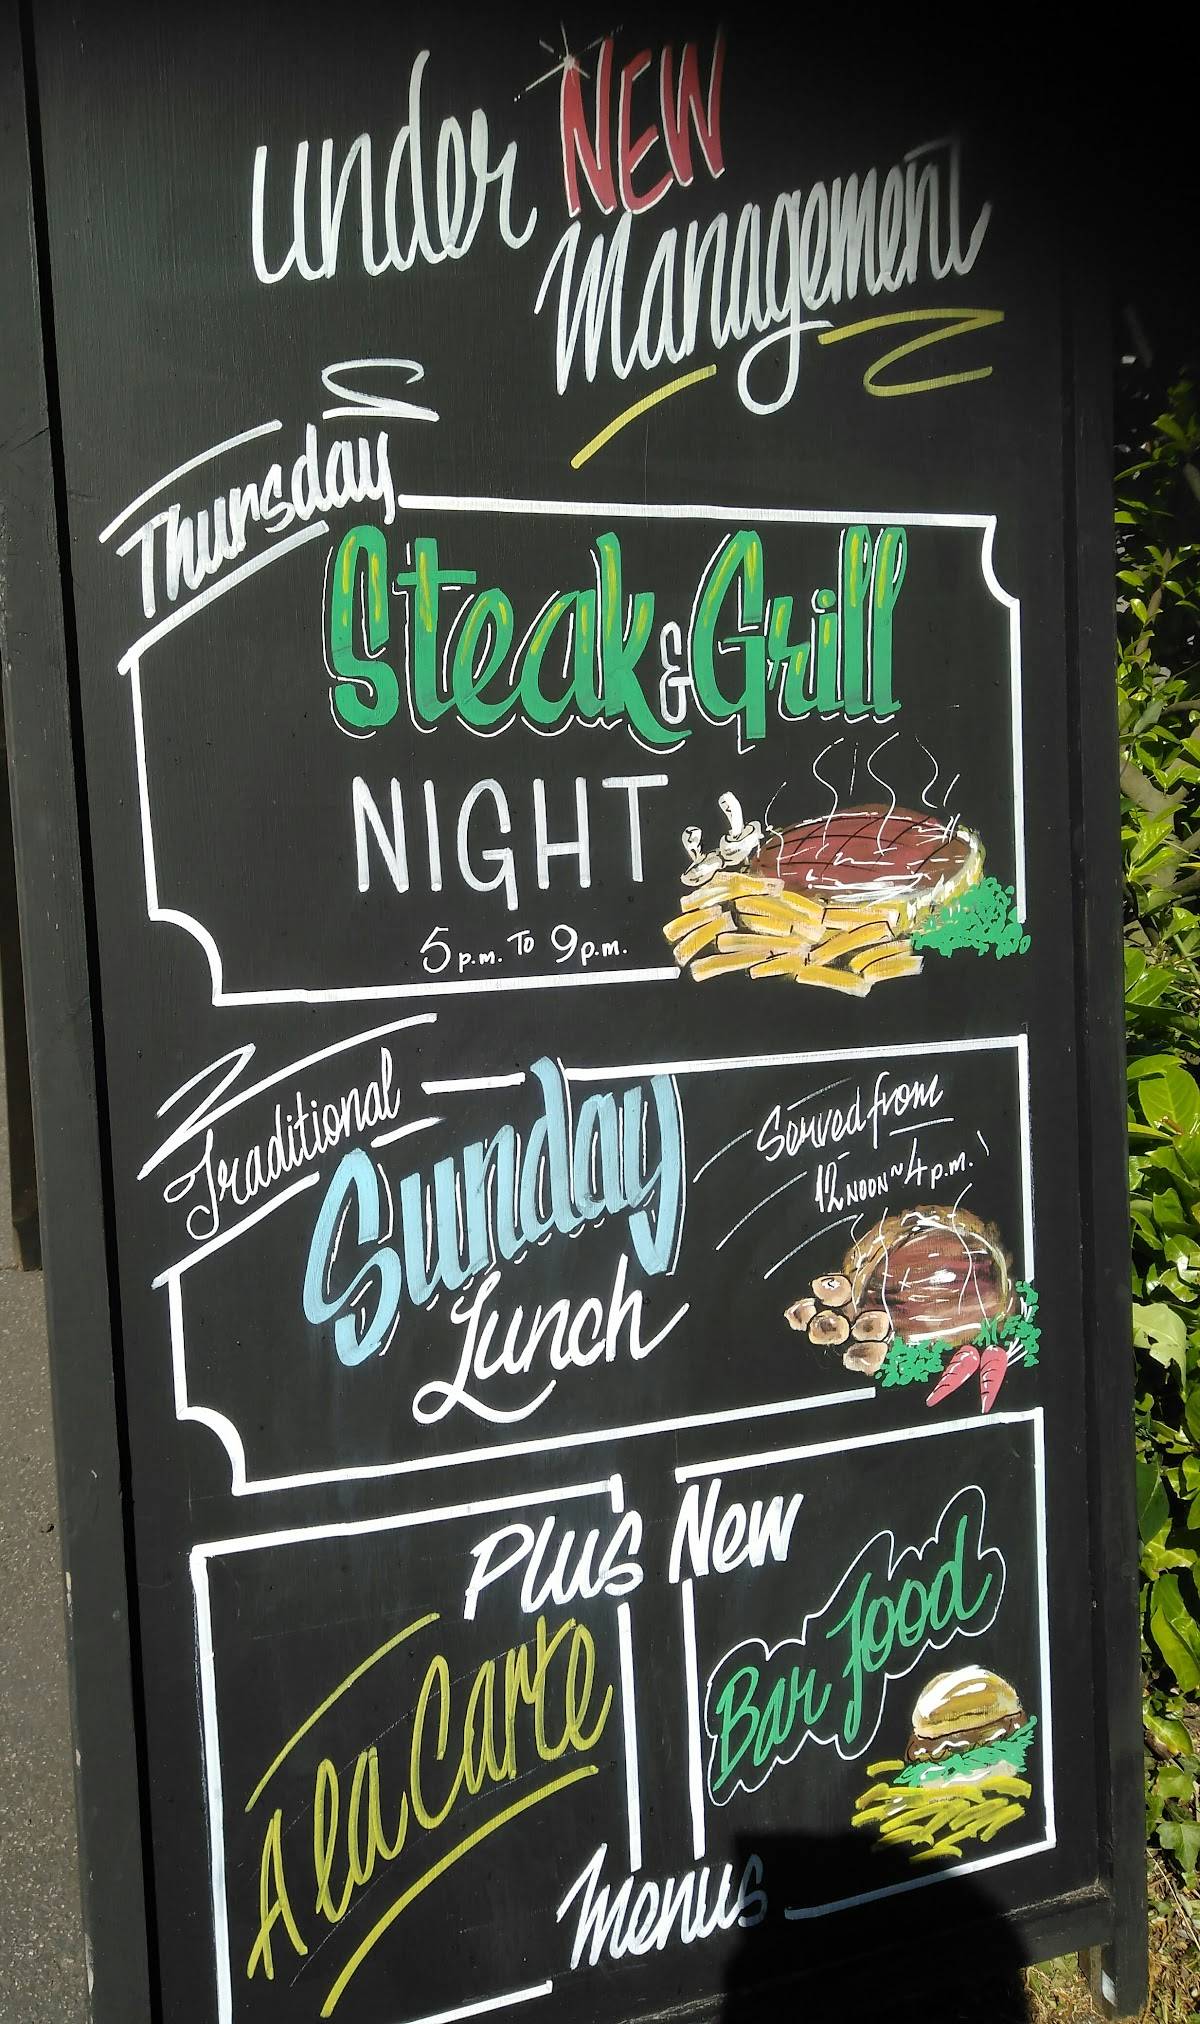 under NEW
Management
Thursday
Steak & Grill
NIGHT
5 p.m. TO 9 p.m.
Traditional
Sunday
Lunch
Served from
12 NOON ~ 4 p.m.
Plus New
A la Carte
Bar Food
Menus